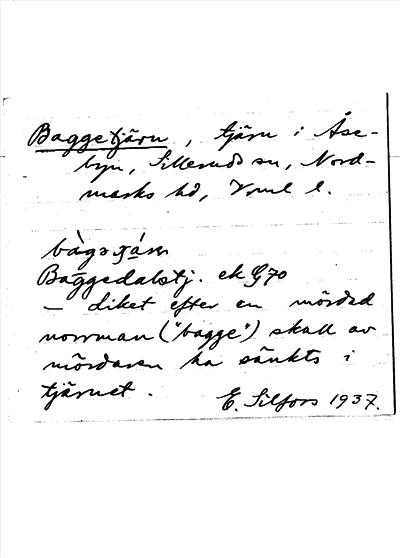 Baggetjärn, tjärn i Åse-
byn, Silleruds sn, Nord-
marks hd, Vrml l.
bàgətjä́rn
Baggedalstj. ek G70
— Liket efter en mördad
norrman ("bagge") skall av
mördaren ha sänkts i
tjärnet.
E. Silfors 1937.